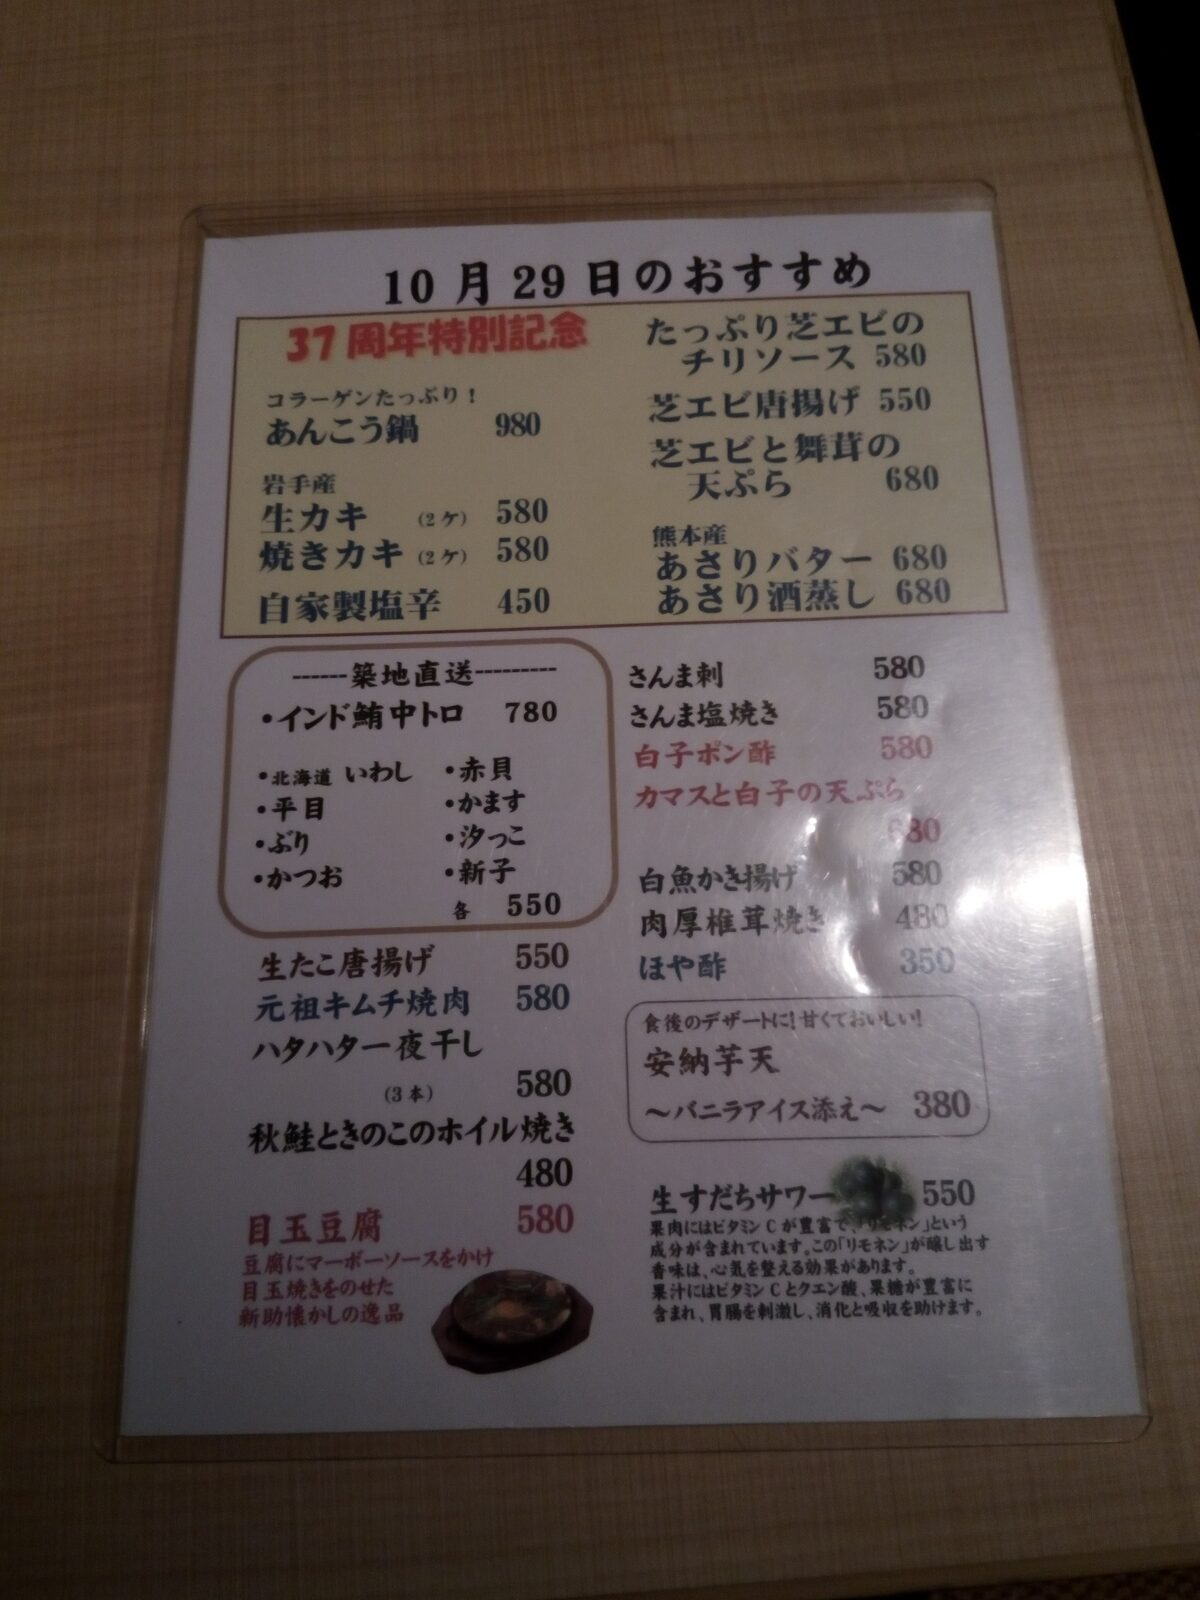 10月29日のおすすめ
37周年特別記念
コラーゲンたっぷり！
あんこう鍋 980
岩手産
生カキ (2ケ) 580
焼きカキ (2ケ) 580
自家製塩辛 450
たっぷり芝エビの
チリソース 580
芝エビ唐揚げ 550
芝エビと舞茸の
天ぷら 680
熊本産
あさりバター 680
あさり酒蒸し 680
------築地直送---------
・インド鮪中トロ 780
・北海道 いわし ・赤貝
・平目 ・かます
・ぶり ・汐っこ
・かつお ・新子
各 550
生たこ唐揚げ 550
元祖キムチ焼肉 580
ハタハタ一夜干し
(3本) 580
秋鮭ときのこのホイル焼き
480
目玉豆腐 580
豆腐にマーボーソースをかけ
目玉焼きをのせた
新助懐かしの逸品
さんま刺 580
さんま塩焼き 580
白子ポン酢 580
カマスと白子の天ぷら
680
白魚かき揚げ 580
肉厚椎茸焼き 480
ほや酢 350
食後のデザートに！甘くておいしい！
安納芋天
～バニラアイス添え～ 380
生すだちサワー 550
果肉にはビタミンCが豊富で、「リモネン」という
成分が含まれています。この「リモネン」が醸し出す
香味は、心気を整える効果があります。
果汁にはビタミンCとクエン酸、果糖が豊富に
含まれ、胃腸を刺激し、消化と吸収を助けます。